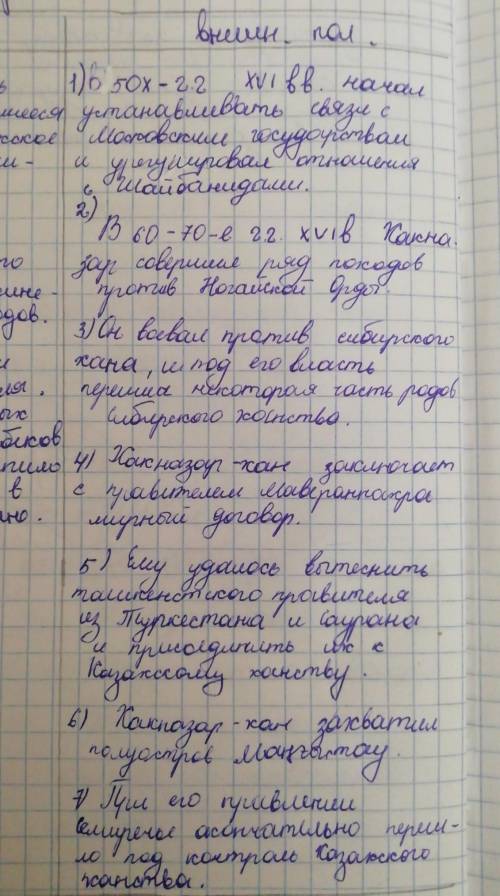 внешн. пол.
ь
1) В 50х-г.г XVI вв. начал
устанавливать связи с
шиеся
ское
Московским государством
и урегулировал отношения
с Шайбанидами.
2)
В 60-70-е г.г. XVI в Хакна
зар совершил ряд походов
против Ногайской Орды.
го
дов.
3) Он воевал против сибирского
хана, и под его власть
перешла некоторая часть родов
Сибирского ханства.
ля.
ых
беков
4) Хакназар-хан заключает
с правителем Мавераннахра
мирный договор.
в
но.
5) Ему удалось вытеснить
ташкентского правителя
из Туркестана и Саурана
и присоединить их к
Казахскому ханству.
6) Хакназар-хан захватил
полуостров Маңғыстау.
7) При его правлении
Семиречье окончательно переш-
ло под контроль Казахского
ханства.